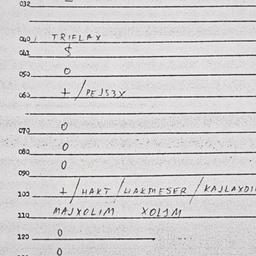 032
040 TRIFLAX
041 S
050 0
060 + / PEJSЗX
070 0
080 0
0
090
100 + / HAKT / HAKMESER / KAJLAXDI
110 MAJXOLIM XOLIM
120 0
0